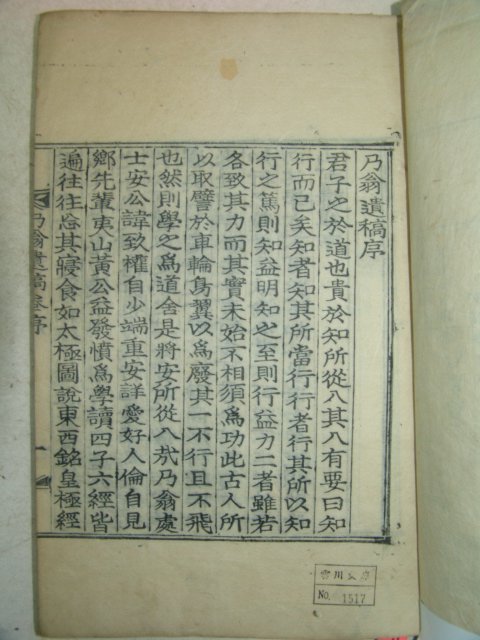 乃翁遺稿序
君子之於道也貴於知所從入其入有要曰知
行而已矣知者知其所當行行者行其所以知
行之篤則知益明知之至則行益力二者雖若
各致其力而其實未始不相須爲功此古人所
以取譬於車輪鳥翼以爲廢其一不行且不飛
也然則學之爲道舍是將安所從入哉乃翁處
士安公諱致權自少端重安詳愛好人倫自見
鄉先輩夷山黃公益發憤爲學讀四子六經皆
遍往往忘其寢食如太極圖說東西銘皇極經
乃翁遺稿 序 一
雲川文庫
No. 1517